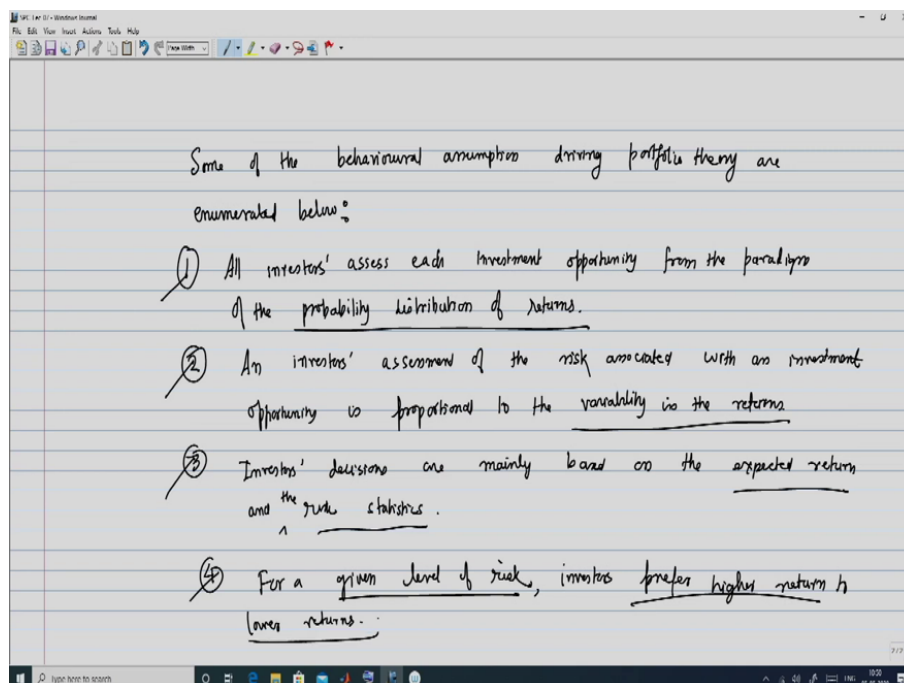 SPC Lec 07 - Windows Journal
File Edit View Insert Actions Tools Help
Page Width
Some of the behavioural assumption driving portfolio theory are
enumerated below:
① All investors' assess each investment opportunity from the paradigm
of the probability distribution of returns.
② An investors' assessment of the risk associated with an investment
opportunity is proportional to the variability in the returns
③ Investors' decisions are mainly based on the expected return
and the risk statistics.
④ For a given level of risk, investors prefer higher return to
lower returns.
Type here to search
ENG
10:00